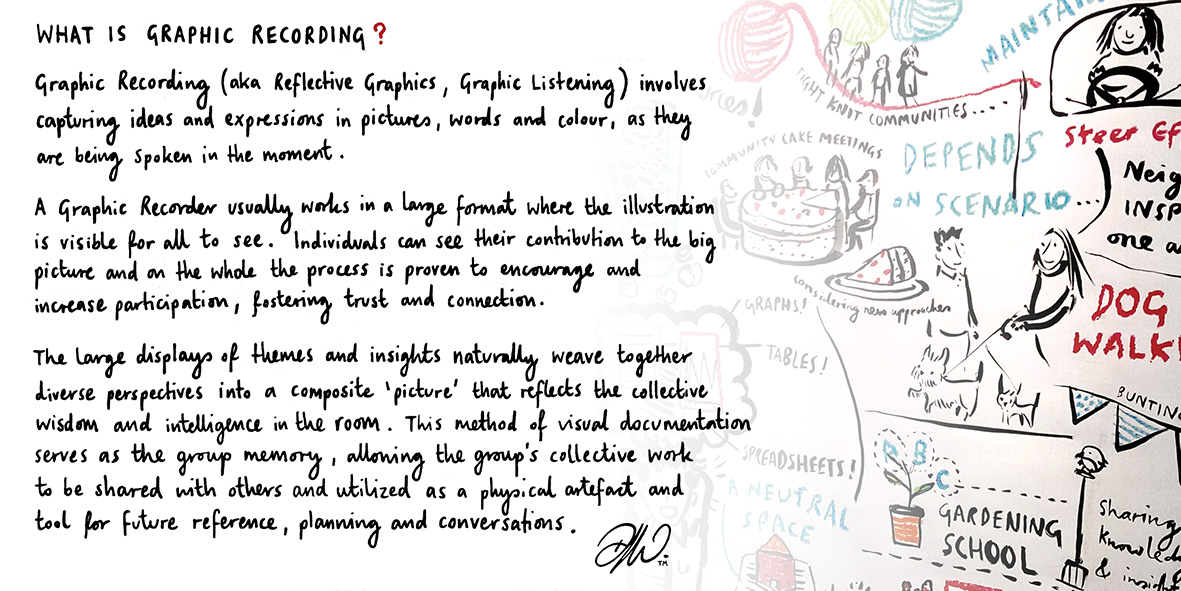 WHAT IS GRAPHIC RECORDING?
Graphic Recording (aka Reflective Graphics, Graphic Listening) involves
capturing ideas and expressions in pictures, words and colour, as they
are being spoken in the moment.
A Graphic Recorder usually works in a large format where the illustration
is visible for all to see. Individuals can see their contribution to the big
picture and on the whole the process is proven to encourage and
increase participation, fostering trust and connection.
The large displays of themes and insights naturally weave together
diverse perspectives into a composite 'picture' that reflects the collective
wisdom and intelligence in the room. This method of visual documentation
serves as the group memory, allowing the group's collective work
to be shared with others and utilized as a physical artefact and
tool for future reference, planning and conversations.
TM
MAINTAI
TIGHT KNIT COMMUNITIES....
COMMUNITY CAKE MEETINGS
DEPENDS
ON SCENARIO...
Steer Ef
Neig
INSP
one a
considering new approaches
DOG
WALK
GRAPHS!
TABLES!
SPREADSHEETS!
BUNTING
A NEUTRAL
SPACE
A B C
GARDENING
SCHOOL
Sharing
knowled
& insight